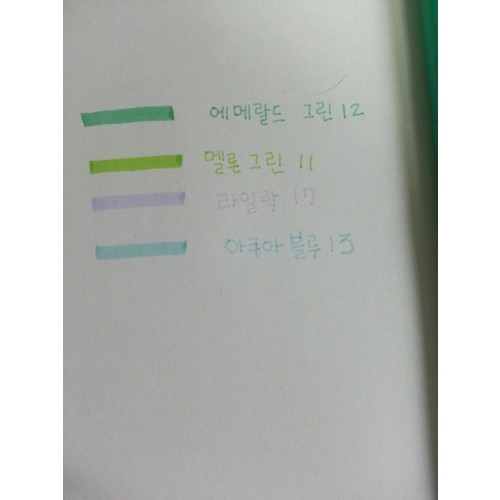 에메랄드 그린 12
멜론그린 11
라일락 17
아쿠아블루 13